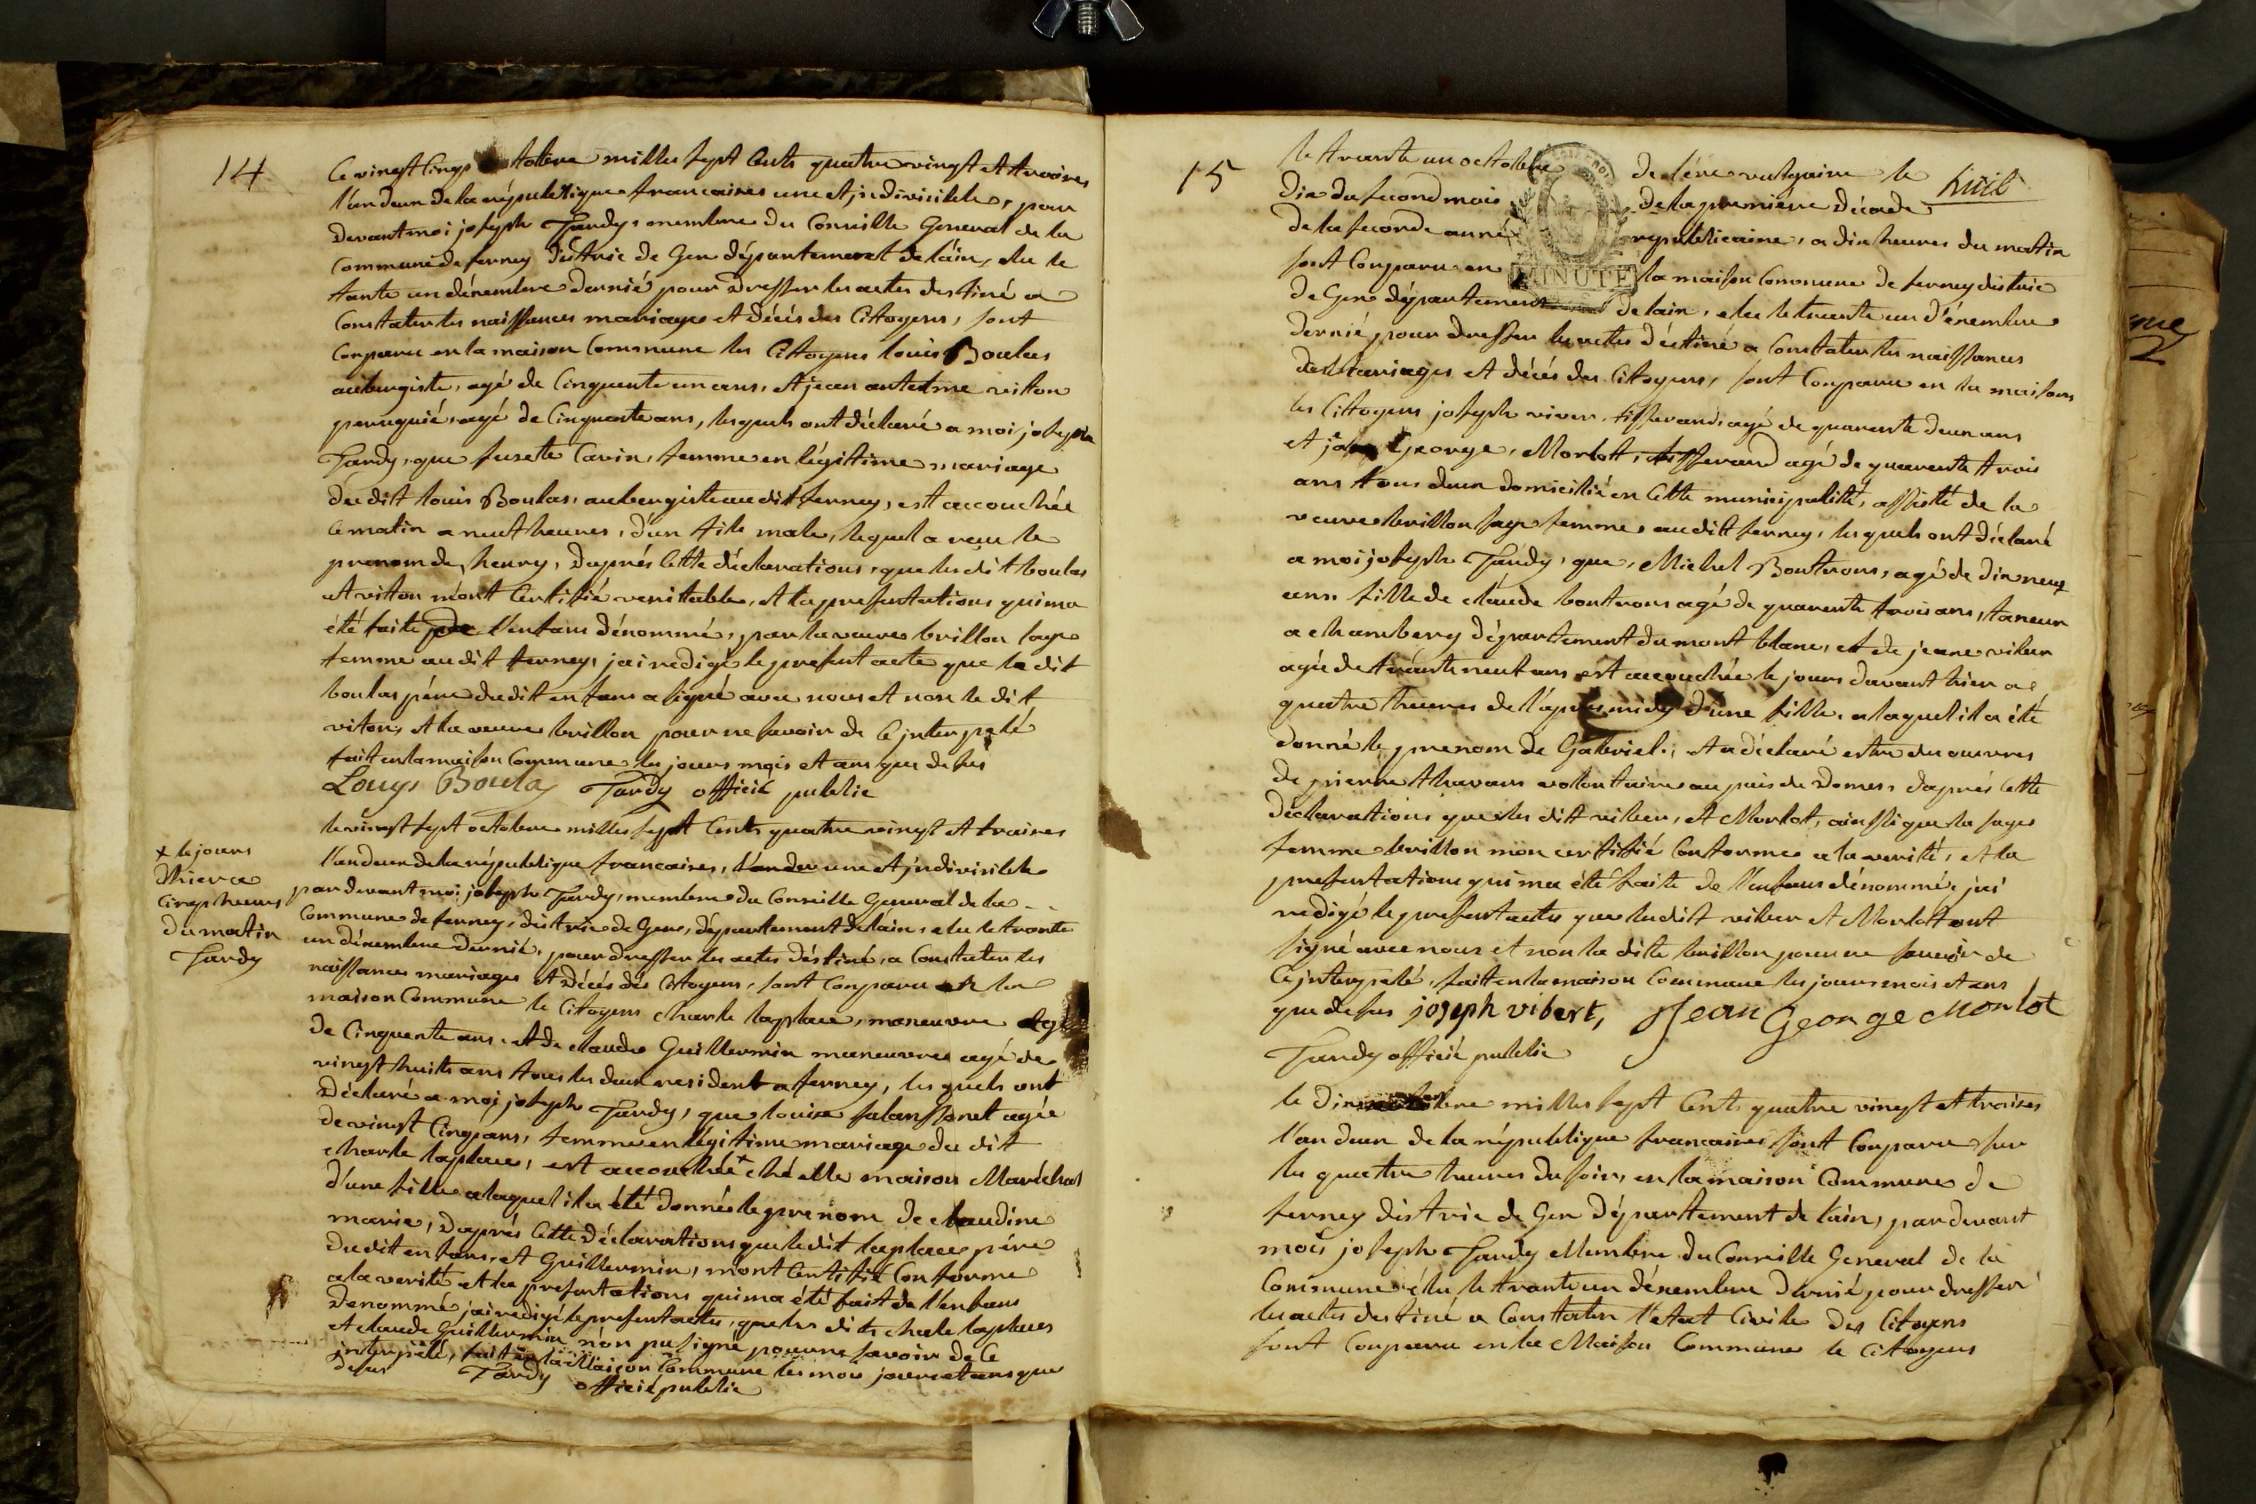 14
Ce vingt Cinqs octobre milles sept Cents quatre vingt et traizes
l'an deux de la république francaises une et jndivisible, par
devant moi joseph Tardy, membre du Conseille General de la
Commune de ferney district de Gex département de láin, elu le
trante un décembre dernié pour dresser les actes destiné a
Constater les naissances mariages et décés des Citoyens, sont
Conparu en la maison Commune les Citoyens louis Boulas
aubergiste, agé de Cinquente un ans, et jean antelme viton
peruquié, agé de Cinquante ans, lesquels ont déclaré a moi joseph
Tardy, que susete Cavin, femme en légitime mariage
du dit louis Boulas, aubergiste au dit ferney, est accouchée
Ce matin a neuf heures, d'un fils male, lequel a recu le
prenom de henry, daprés Cette déclarations, que les dit boulas
et viton m'ont Certifié veritable, et la presentations qui ma
été faite de l'enfans dénommé, par la veuve brillon sage
femme au dit ferney, jai redigé le present acte que le dit
boulas pére du dit enfans a signé avec nous et non le dit
viton, et la veuve brillon pour ne savoir de Ce jnterpelé
fait en la maison Commune les jours mois et ans que desus
Louys Boulas Tardy officié public
le vingt sept octobre milles sept Cents quatre vingt et traizes
l'an deux de la république francaises, une et jndivisible
par devant moi joseph Tardy, membre du Conseille General de la
Commune de ferney, district de Gex, département de láin, elu le trante
un décembre dernié, pour dresser les actes déstiné, a Constater les
naissances mariages et décés des Citoyens, sont Conparu en la
maison Commune le Citoyens charle laplace, maneuvre agé
de Cinquente ans, et de claude Guillermin maneuvres agé de
vingt huits ans tous les deux resident a ferney, les quels ont
déclaré a moi joseph Tardy, que louise salanssonet agée
de vingt Cinq ans, femme en légitime mariage du dit
charle laplace, est accouchée + ché elle maison Maréchal
d'une fille a laquel il a été donnée le prenom de claudine
marie, d'aprés Cette déclarations que le dit laplace pére
du dit enfans, et Guillermin, m'ont Certifié Conforme
a la verité et la presentations qui ma été fait de l'enfans
dénommé, jai redigé le present actes, que les dits charle laplaces
et claude Guillermin n'on pu signé pour ne savoir de Ce
jnterpelé, fait en la Maison Commune les mois jours et ans que
desus Tardy officié public
+ le jours
d'hier a
Cinqs heures
du matin
Tardy
15
huit
le trante un octobre de l'ére vulgaire le
dix du second mois de la premiere décade
de la seconde anné republicaine, a dix heures du matin
sont Conparu en la maison Commune de ferney district
MINUTE
de Gex département de lain, elu le trente un d'écembre
dernié, pour dresser les actes déstiné a Constater les naissances
des mariages et décés des Citoyens, sont Conparu en la maison
les Citoyens joseph viver, tisserand, agé de quarente deux ans
et George, Morlott, tisserand agé de quarente trois
ans tous deux domicilié en Cette municipalité, assisté de la
veuve brillon sage femme, au dit ferney, les quels ont déclaré
a moi joseph Tardy, que, Michel Boutrons, agé de dix neuf
ans, fille de claude boutrons agé de quarente trois ans, taneur
a chambery département du mont blanc, et de jeane viber
agée de trante neuf ans est accouchée le jours davant hier a
quatre heures de l'apres midy d'une fille, a laquel il a été
donné le prenom de Gabriel, et a déclaré estre du ouvres
de pierre thavans volontaire au puis de domes, daprés Cette
déclarations que les dit viber, et Morlot, ainssi que la sage
femme brillon mon certifié Conforme a la verité, et la
presentations qui ma été faite de l'enfans dénommé, jai
redigé le present actes que les dit viber et Morlot ont
signé avec nous et non la dite brillon pour ne savoir de
Ce jnterpelé, fait en la maison Commune les jours mois et ans
que desus joseph vibert, Jean George Morlot
Tardy officié public
le dix milles sept Cents quatre vingt et traizes
l'an deux de la république francaises sont Conparu sur
les quatre heures du soir, en la maison Commune de
ferney district de Gex département de l'ain, par devant
mois joseph Tardy Membre du Conseille General de la
Commune élu le trante un décembre dérnié pour dresser
les actes destiné a Constater l'etat Civile des Citoyens
sont Conparu en la Maison Commune le Citoyens